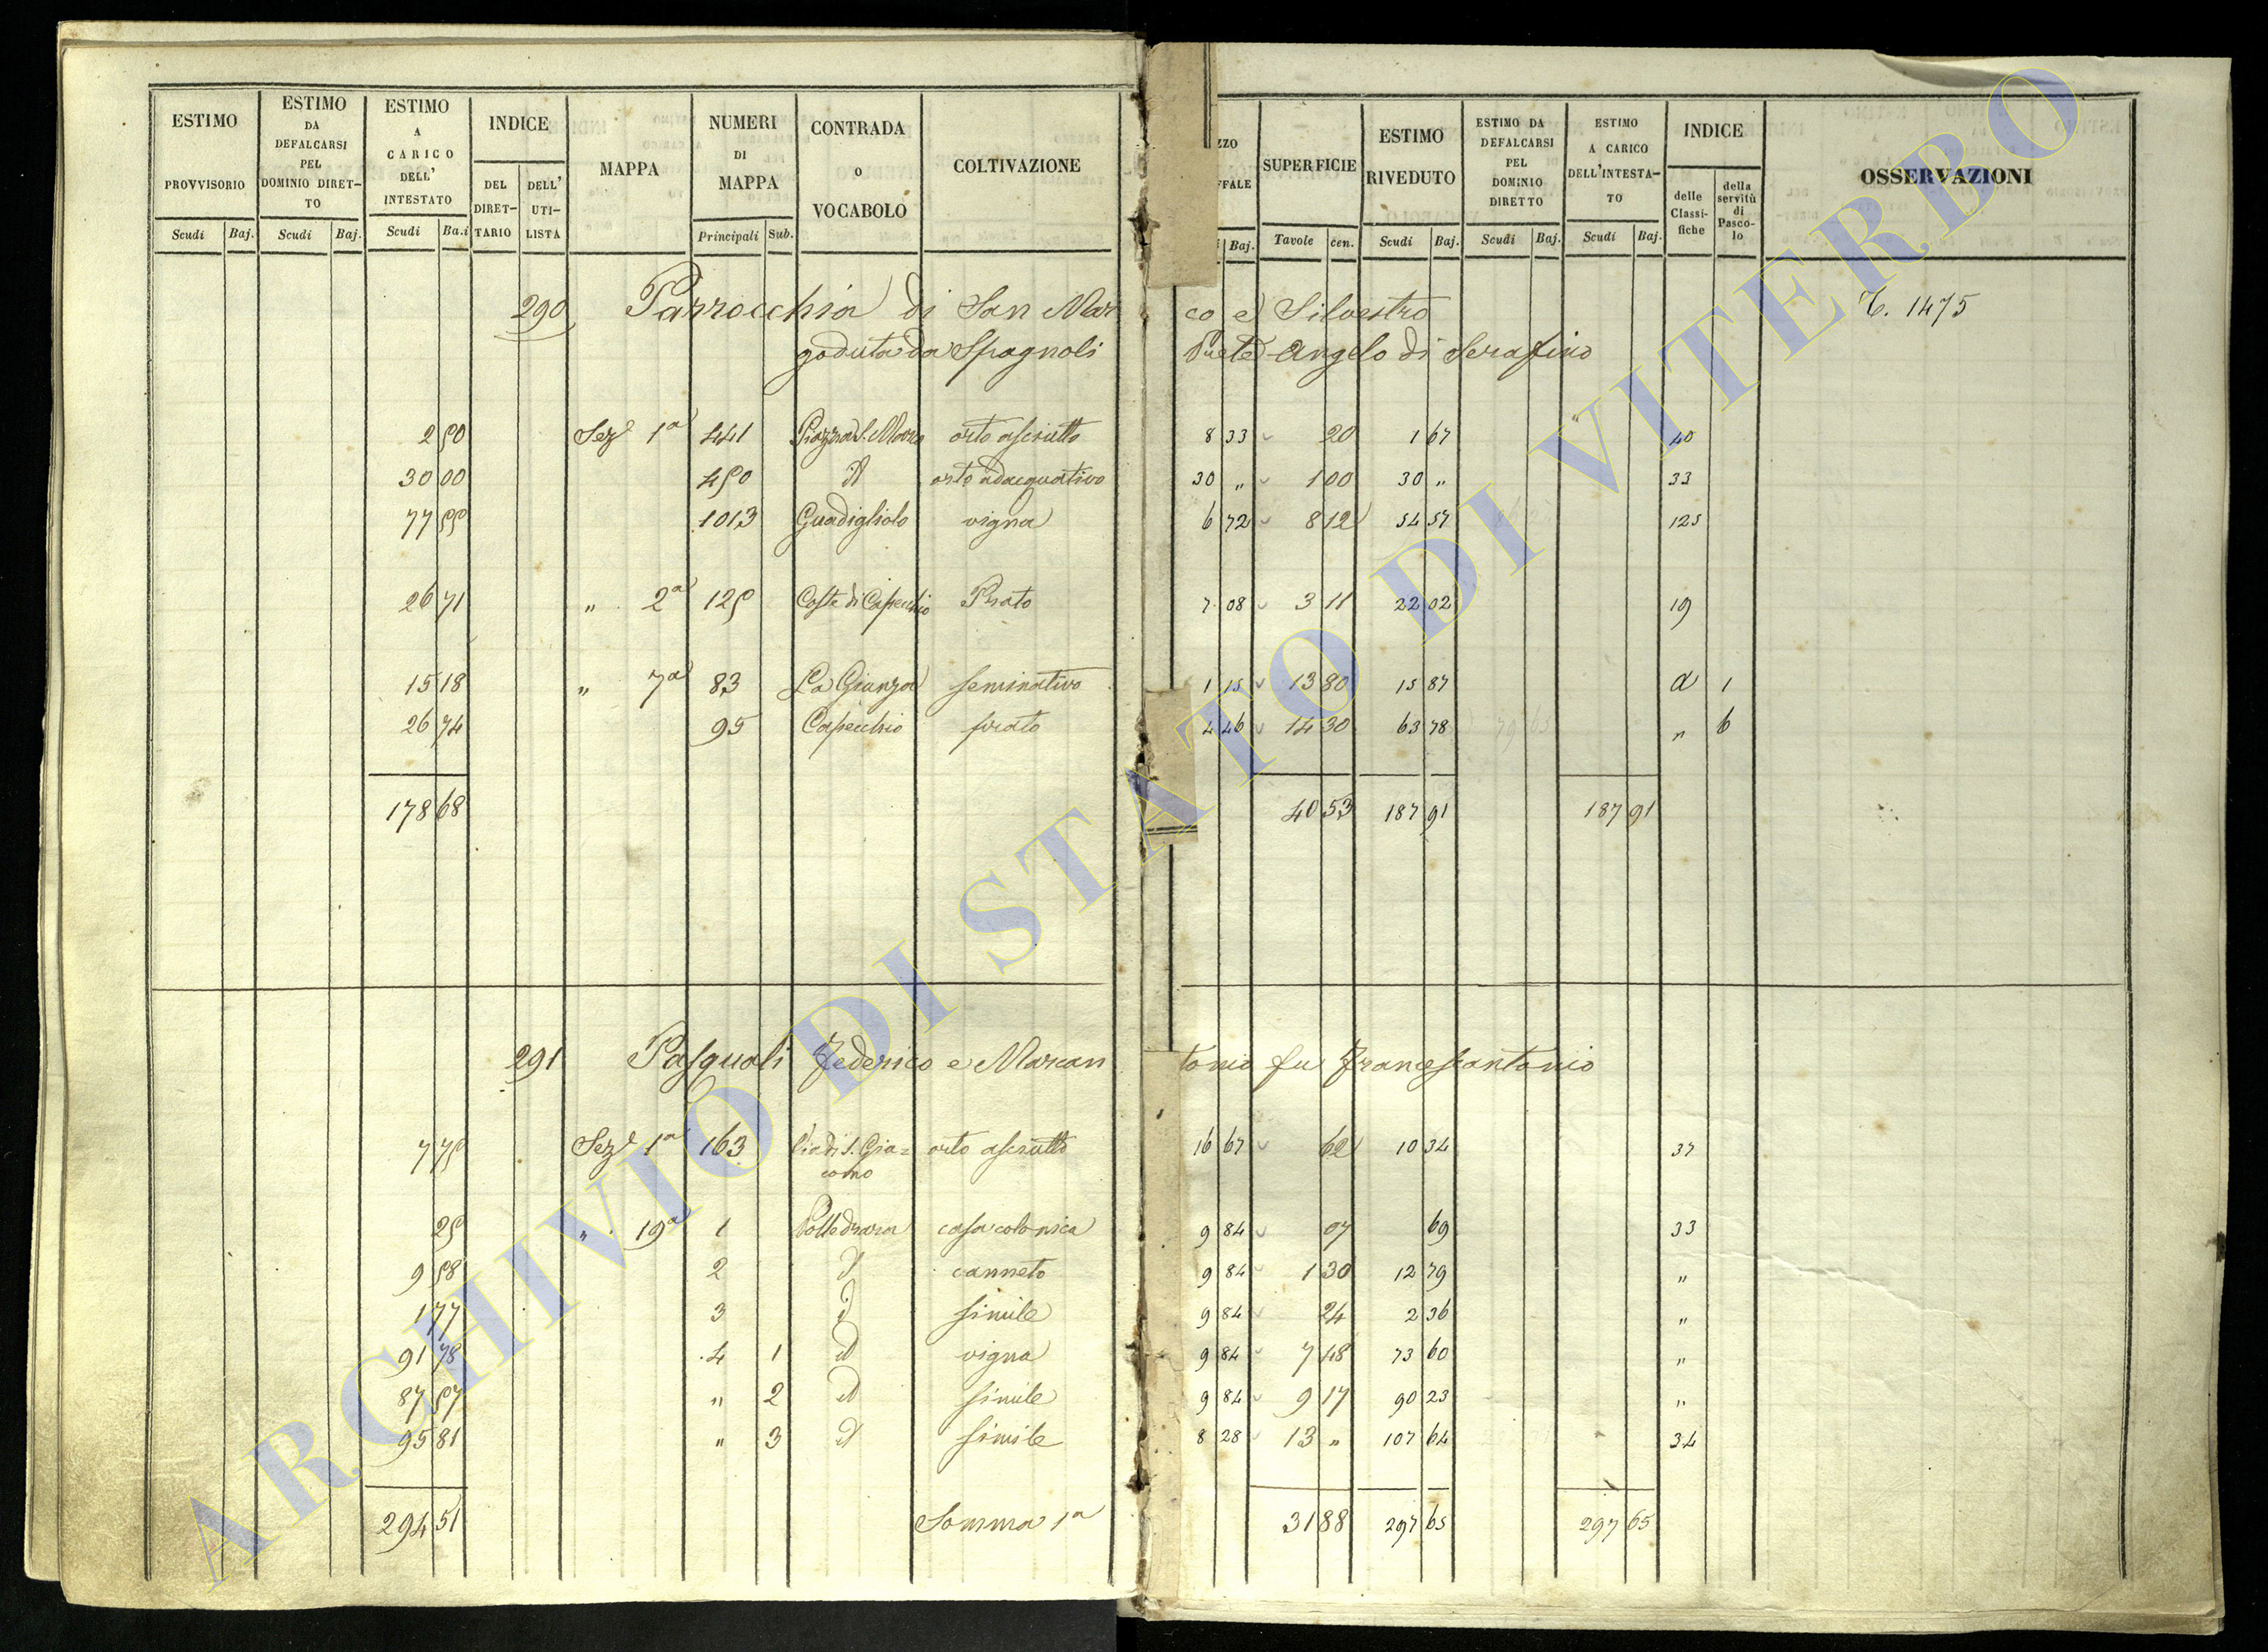 ESTIMO PROVVISORIO Scudi Baj. ESTIMO DA DEFALCARSI PEL DOMINIO DIRET-TO Scudi Baj. ESTIMO A CARICO DELL' INTESTATO Scudi Ba.i INDICE DEL DIRET-TARIO DELL' UTI-LISTA MAPPA NUMERI DI MAPPA Principali Sub. CONTRADA o VOCABOLO COLTIVAZIONE ZZO FFALE Baj. SUPERFICIE Tavole cen. ESTIMO RIVEDUTO Scudi Baj. ESTIMO DA DEFALCARSI PEL DOMINIO DIRETTO Scudi Baj. ESTIMO A CARICO DELL'INTESTA-TO Scudi Baj. INDICE delle Classi-fiche della servitù di Pasco-lo OSSERVAZIONI
290 Parrocchia di San Mar co e Silvestro T. 1475
goduta da Spagnoli Prete Angelo di Serafino
2 50 Sez.e 1a 441 Piazza di S. Marco orto asciutto 8 33 20 1 67 40
30 00 450 id orto adacquativo 30 " 1 00 30 " 33
77 55 1013 Guadigliolo vigna 6 72 8 12 54 57 125
26 71 " 2a 125 Coste di Capecchio Prato 7 08 3 11 22 02 19
15 18 " 7a 83 La Gianza seminativo 1 15 13 80 15 87 a 1
26 74 95 Capecchio prato 4 46 14 30 63 78 " 6
178 68 40 53 187 91 187 91
291 Pasquali Federico e Marcan tonio fu Francescantonio
7 75 Sez.e 1a 163 Via di S. Gia= orto asciutto 16 67 62 10 34 37
como
25 " 19a 1 Polledrara casa colonica 9 84 07 69 33
9 58 2 id canneto 9 84 1 30 12 79 "
1 77 3 id simile 9 84 24 2 36 "
91 78 4 1 id vigna 9 84 7 48 73 60 "
87 57 " 2 id simile 9 84 9 17 90 23 "
95 81 " 3 id simile 8 28 13 " 107 64 34
294 51 Somma 1a 31 88 297 65 297 65
ARCHIVIO DI STATO DI VITERBO